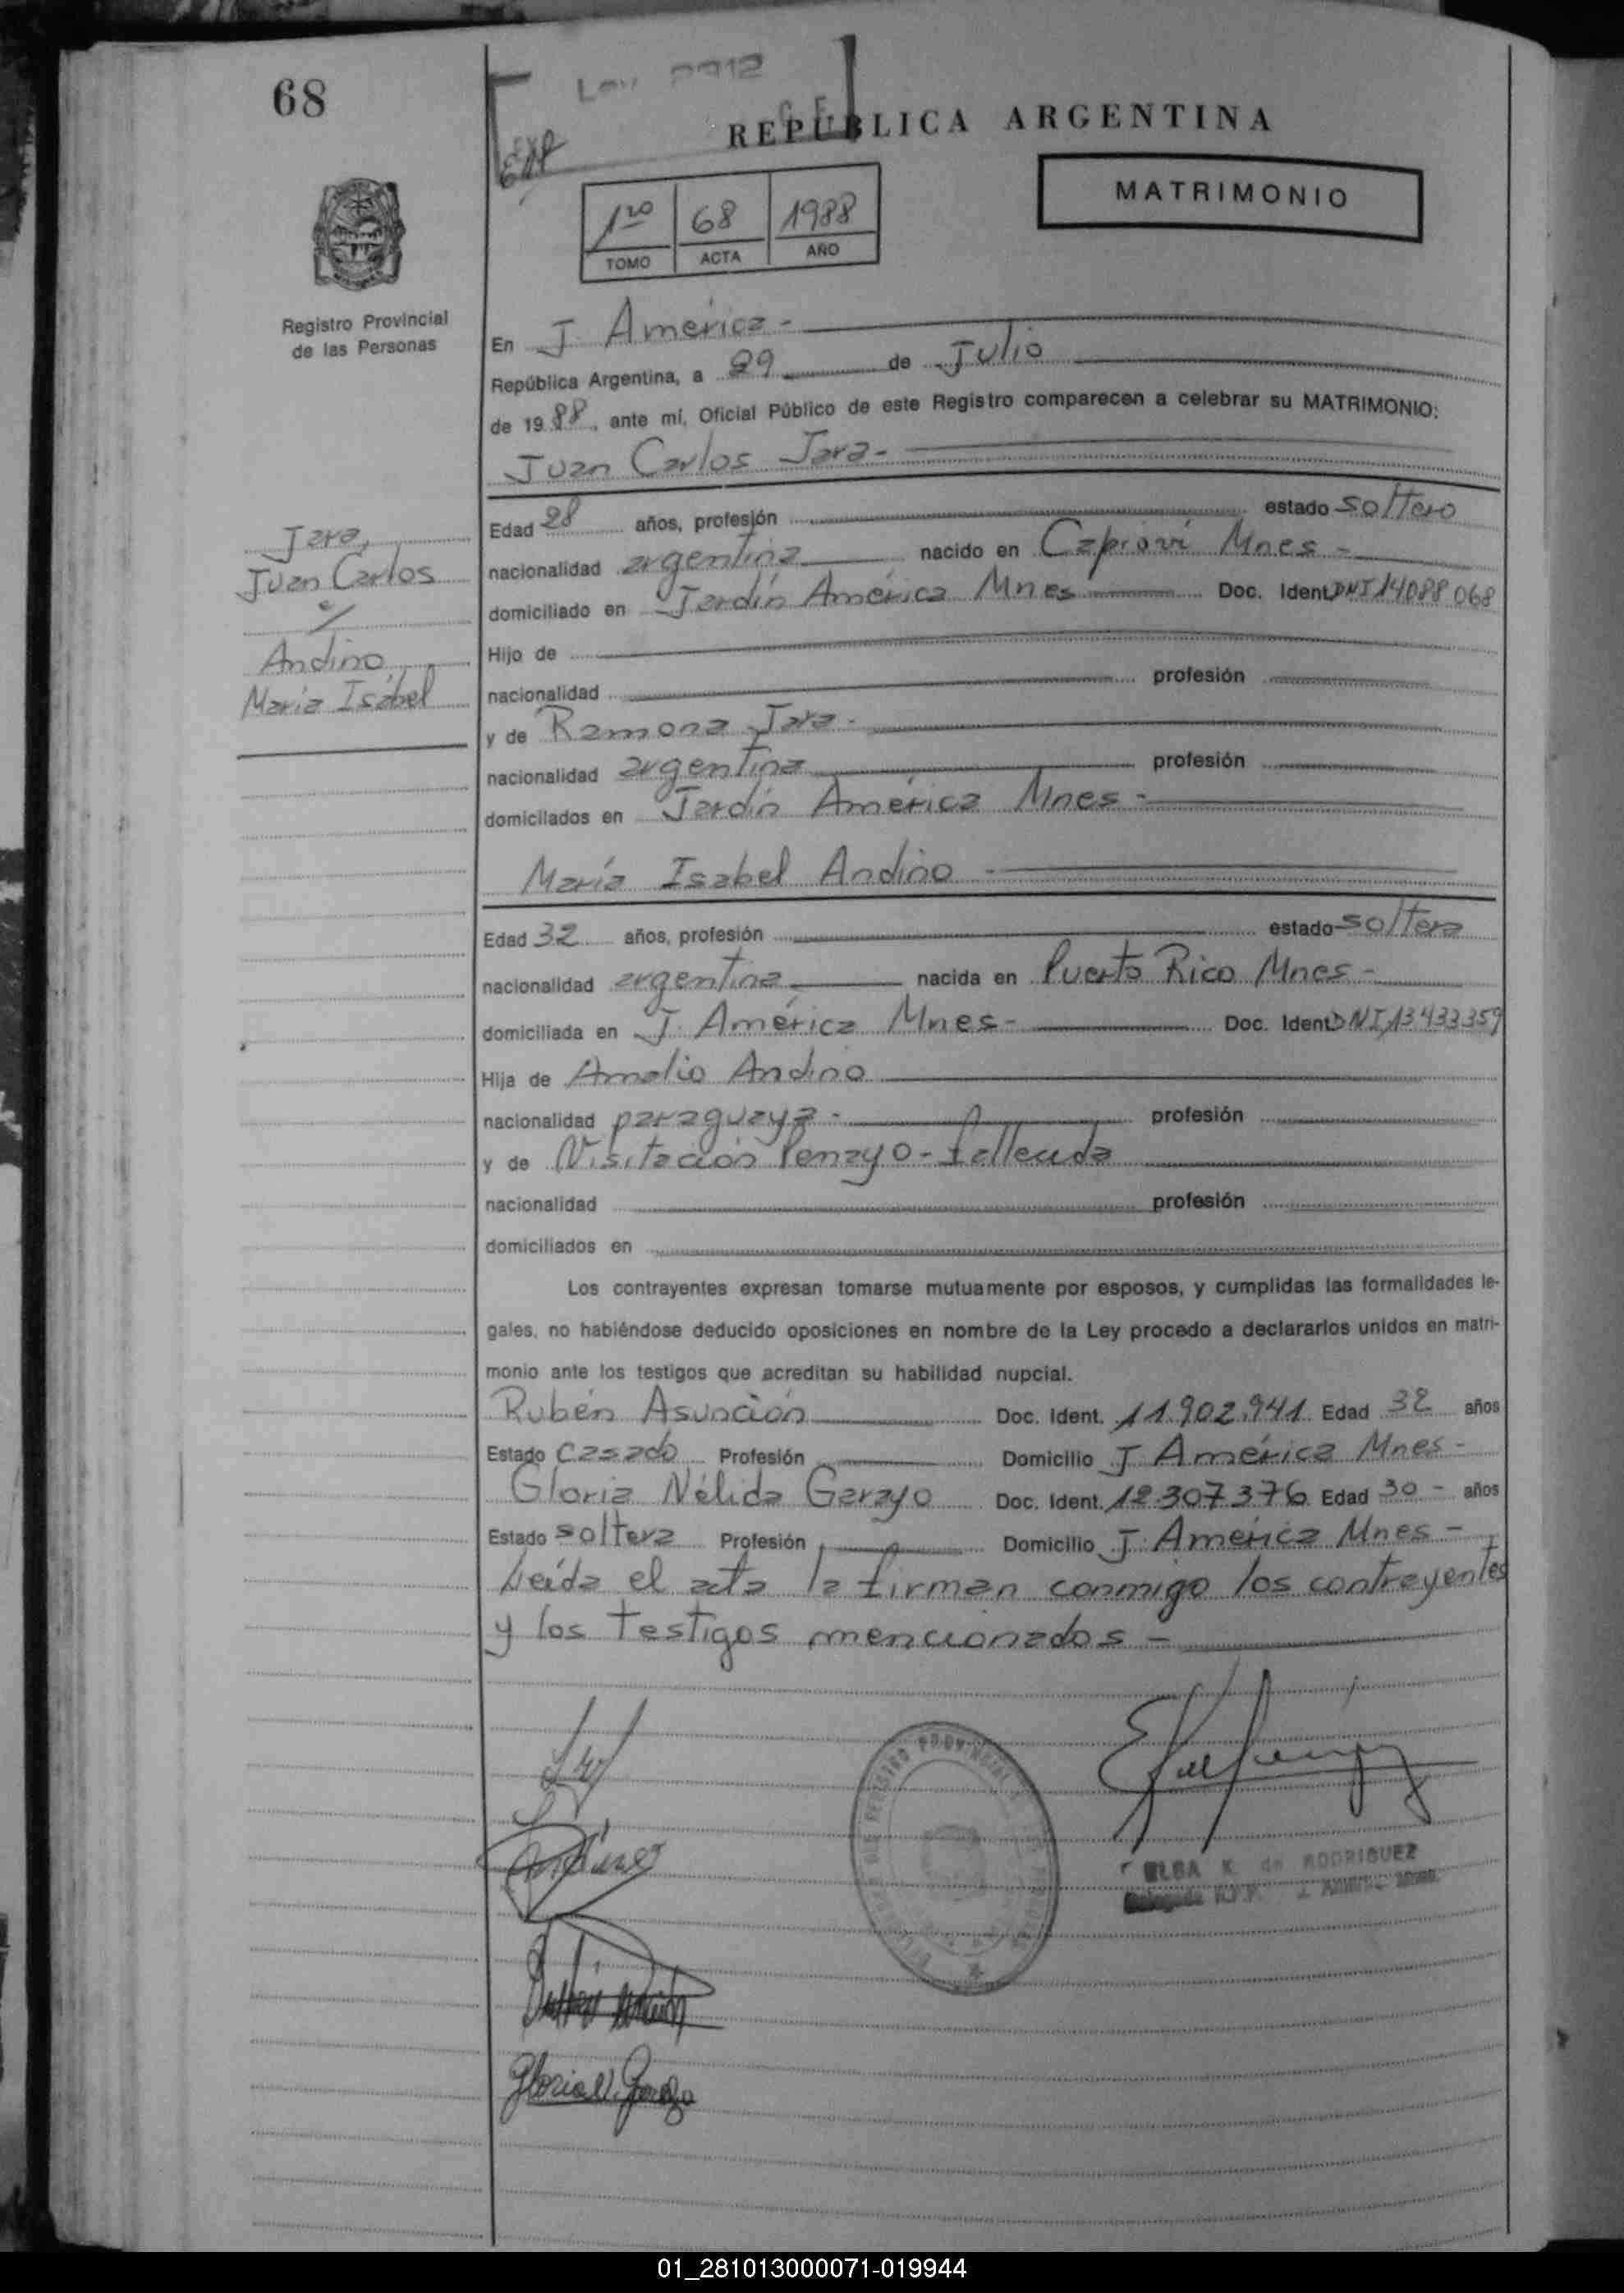 68
Ley 2312
C.F.
Exp
REPUBLICA ARGENTINA
MATRIMONIO
1ro 68 1988
TOMO ACTA AÑO
Registro Provincial
de las Personas
En J. América-
República Argentina, a 29 de Julio
de 1988, ante mí, Oficial Público de este Registro comparecen a celebrar su MATRIMONIO:
Juan Carlos Jara-
Jara,
Juan Carlos
c/
Andino
María Isabel
Edad 28 años, profesión estado soltero
nacionalidad argentina nacido en Capioví Mnes-
domiciliado en Jardín América Mnes Doc. Ident. DNI 14088068
Hijo de
nacionalidad profesión
y de Ramona Jara-
nacionalidad argentina profesión
domiciliados en Jardín América Mnes-
María Isabel Andino-
Edad 32 años, profesión estado soltera
nacionalidad argentina nacida en Puerto Rico Mnes-
domiciliada en J. América Mnes- Doc. Ident. DNI 13433359
Hija de Amalio Andino
nacionalidad paraguaya- profesión
y de Visitación Penayo-fallecida
nacionalidad profesión
domiciliados en
Los contrayentes expresan tomarse mutuamente por esposos, y cumplidas las formalidades le-
gales, no habiéndose deducido oposiciones en nombre de la Ley procedo a declararlos unidos en matri-
monio ante los testigos que acreditan su habilidad nupcial.
Rubén Asunción Doc. Ident. 11.902.941 Edad 32 años
Estado casado Profesión Domicilio J América Mnes-
Gloria Nélida Garayo Doc. Ident. 12.307.376 Edad 30- años
Estado soltera Profesión Domicilio J. América Mnes-
Leída el acta la firman conmigo los contrayentes
y los testigos mencionados-
ELBA K. de RODRIGUEZ
Delegada R.P.P. J. América Mnes.
Gloria N. Garayo
01_281013000071-019944